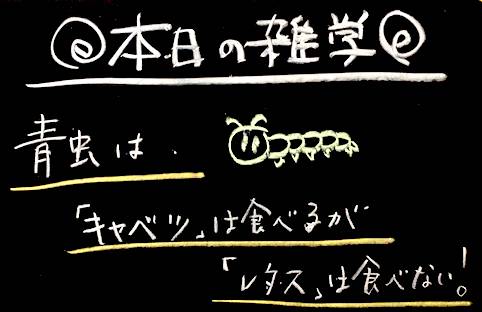 @本日の雑学@
青虫は、
「キャベツ」は食べるが
「レタス」は食べない!